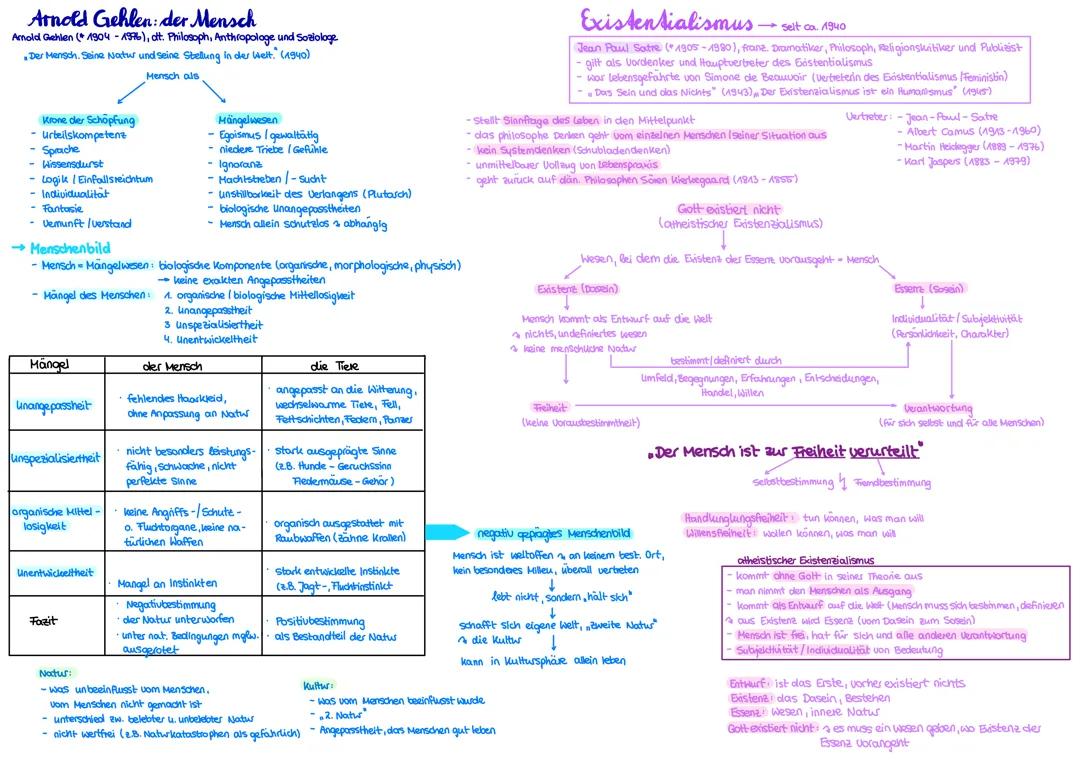 Arnold Gehlen: der Mensch
Arnold Gehlen (* 1904 - 1976), dt. Philosoph, Anthropologe und Soziologe
„Der Mensch. Seine Natur und seine Stellung in der Welt." (1940)
Mensch als
Krone der Schöpfung
- Urteilskompetenz
- Sprache
- Wissensdurst
- Logik / Einfallsreichtum
- Individualität
- Fantasie
- Vernunft / Verstand
Mängelwesen
- Egoismus / gewaltätig
- niedere Triebe / Gefühle
- Ignoranz
- Machtstreben / - Sucht
- unstillbarkeit des Verlangens (Plutarch)
- biologische Unangepasstheiten
- Mensch allein schutzlos ↝ abhängig
→ Menschenbild
- Mensch = Mängelwesen: biologische Komponente (organische, morphologische, physisch)
→ keine exakten Angepasstheiten
- Mängel des Menschen: 1. organische / biologische Mittellosigkeit
2. Unangepasstheit
3 Unspezialisiertheit
4. Unentwickeltheit
Mängel
der Mensch
die Tiere
Unangepassheit
· fehlendes Haarkleid,
ohne Anpassung an Natur
· angepasst an die Witterung,
wechselwarme Tiere, Fell,
Fettschichten, Federn, Panzer
Unspezialisiertheit
· nicht besonders leistungs-
fähig, schwache, nicht
perfekte Sinne
· stark ausgeprägte Sinne
(z.B. Hunde - Geruchssinn
Fledermäuse - Gehör)
organische Mittel-
losigkeit
· keine Angriffs - / Schutz -
o. Fluchtorgane, keine na-
türlichen Waffen
· organisch ausgestattet mit
Raubwaffen (Zähne Krallen)
Unentwickeltheit
· Mangel an Instinkten
· stark entwickelte Instinkte
(z.B. Jagt-, Fluchtinstinkt
Fazit
· Negativbestimmung
· der Natur unterworfen
· unter nat. Bedingungen mglw.
ausgerotet
· Positivbestimmung
· als Bestandteil der Natur
negativ geprägtes Menschenbild
Mensch ist weltoffen ↝ an keinem best. Ort,
kein besonderes Milieu, überall vertreten
lebt nicht, sondern „hält sich"
schafft sich eigene Welt, „zweite Natur"
↝ die Kultur
kann in Kultursphäre allein leben
Natur:
- was unbeeinflusst vom Menschen,
vom Menschen nicht gemacht ist
- unterschied zw. belebter u. unbelebter Natur
- nicht wertfrei (z.B. Naturkatastrophen als gefährlich)
Kultur:
- was vom Menschen beeinflusst wurde
- „2. Natur"
- Angepasstheit, das Menschen gut leben
Existentialismus → seit ca. 1940
Jean Paul Satre (* 1905 - 1980), franz. Dramatiker, Philosoph, Religionskritiker und Publizist
- gilt als Vordenker und Hauptvertreter des Existentialismus
- war lebensgefährte von Simone de Beauvoir (Vertreterin des Existentialismus / Feministin)
- „Das Sein und das Nichts" (1943), „Der Existenzialismus ist ein Humanismus" (1945)
- stellt Sinnfrage des Leben in den Mittelpunkt
- das philosophe Denken geht vom einzelnen Menschen / seiner Situation aus
- kein Systemdenken (Schubladendenken)
- unmittelbarer Vollzug von Lebenspraxis
- geht zurück auf dän. Philosophen Sören Kierkegaard (1813 - 1855)
Vertreter: - Jean - Paul - Satre
- Albert Camus (1913 -1960)
- Martin Heidegger (1889 - 1976)
- Karl Jaspers (1883 - 1979)
Gott existiert nicht
(atheistischer Existenzialismus)
Wesen, bei dem die Existenz der Essenz vorausgeht = Mensch
Existenz (Dasein)
Essenz (Sosein)
Mensch kommt als Entwurf auf die Welt
↝ nichts, undefiniertes Wesen
↝ keine menschliche Natur
Individualität / Subjektivität
(Persönlichkeit, Charakter)
bestimmt/definiert durch
Umfeld, Begegnungen, Erfahrungen, Entscheidungen,
Handel, Willen
Freiheit
(keine Vorausbestimmtheit)
Verantwortung
(für sich selbst und für alle Menschen)
„Der Mensch ist zur Freiheit verurteilt"
selbstbestimmung ↯ Fremdbestimmung
Handlunglungsfreiheit: tun können, was man will
Willensfreiheit: wollen können, was man will
atheistischer Existenzialismus
- kommt ohne Gott in seiner Theorie aus
- man nimmt den Menschen als Ausgang
- kommt als Entwurf auf die Welt (Mensch muss sich bestimmen, definieren
↝ aus Existenz wird Essenz (vom Dasein zum Sosein)
- Mensch ist frei, hat für sich und alle anderen Verantwortung
- Subjektivität / Individualität von Bedeutung
Entwurf: ist das Erste, vorher existiert nichts
Existenz: das Dasein, Bestehen
Essenz: Wesen, innere Natur
Gott existiert nicht: ↝ es muss ein Wesen geben, wo Existenz der
Essenz vorangeht